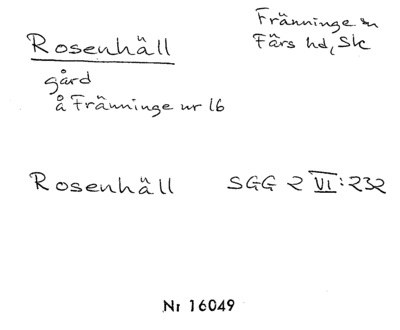 Rosenhäll
Fränninge sn
Färs hd, Sk
gård
å Fränninge nr 16
Rosenhäll SGG 2 VI:232
Nr 16049